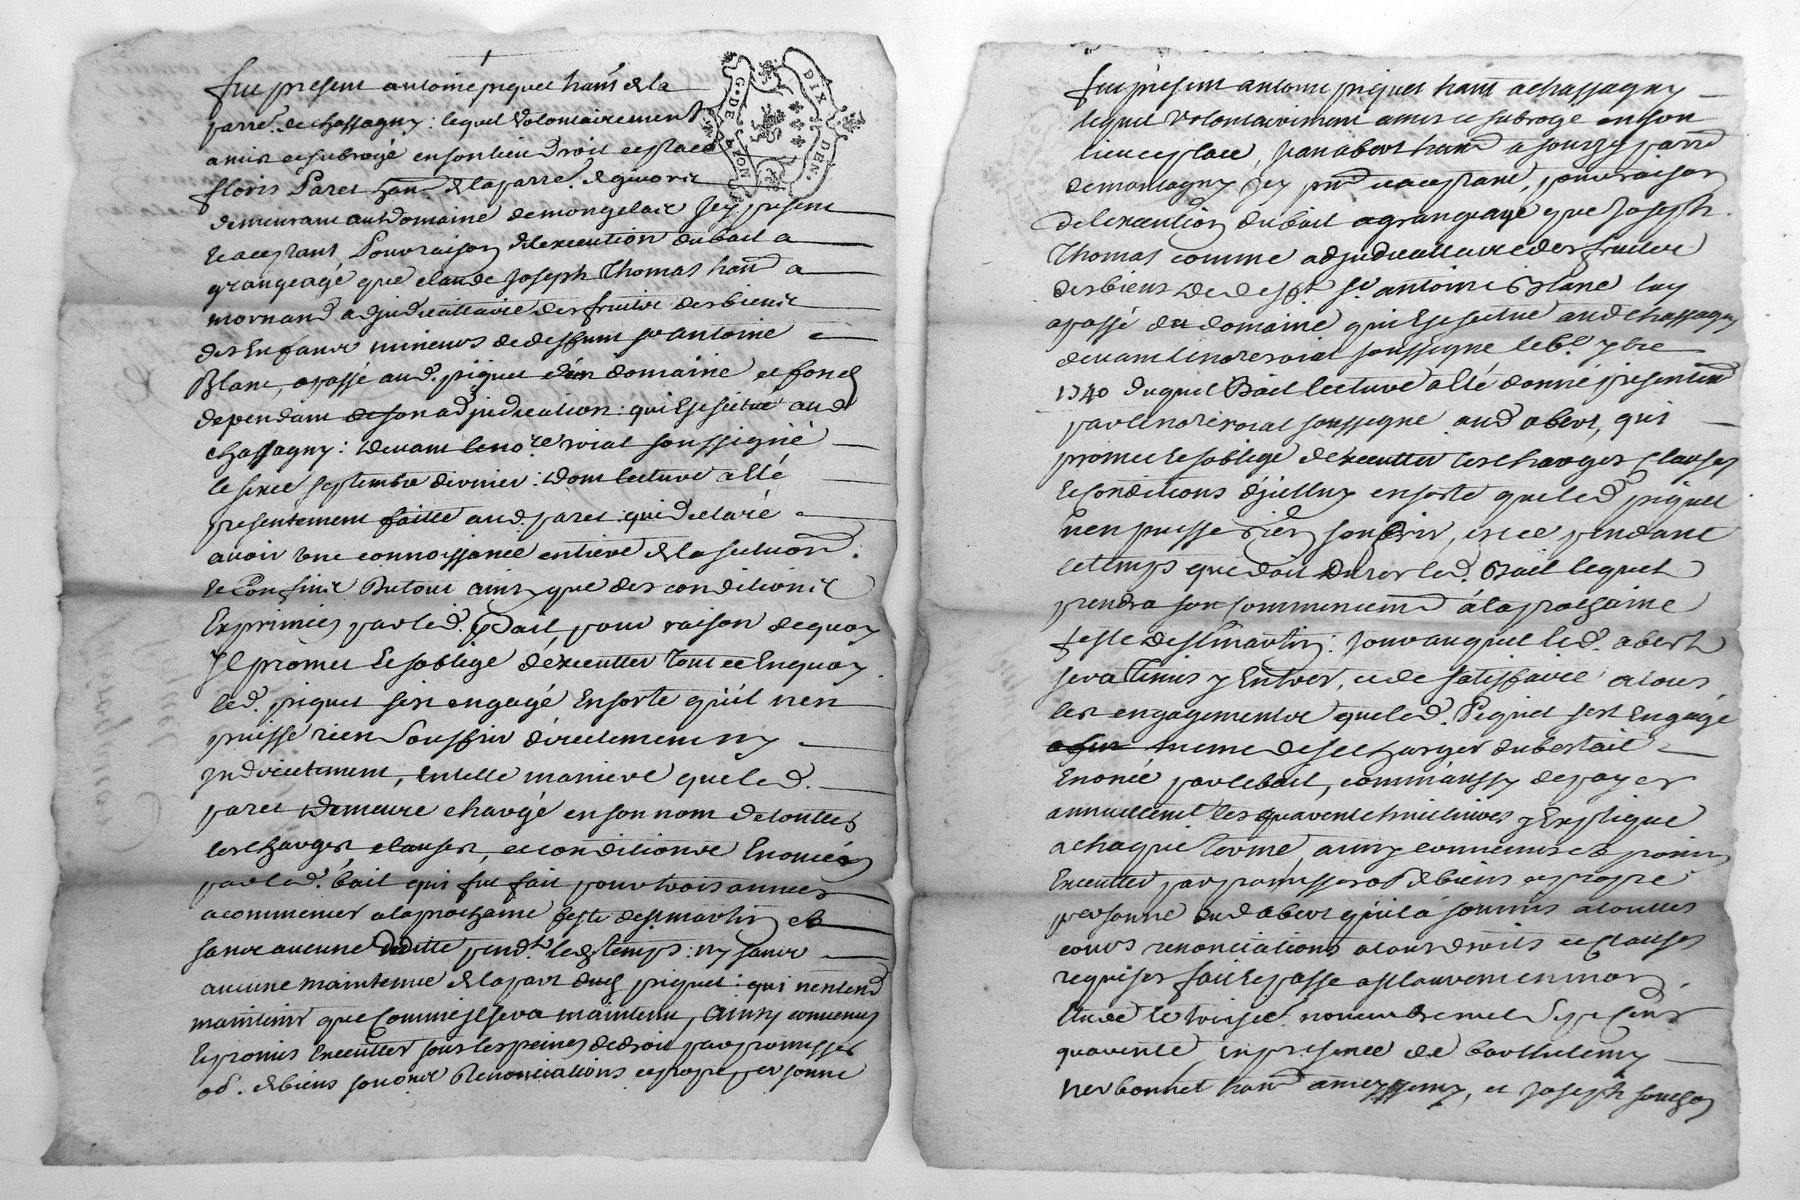 fut present antoine piquet han^t de la
parre. de chassagny : lequel volontairement
a mis et subrogé en son lieu droit et place
floris Paret han^t de la parre. de givors
demeurant au domaine de mongelas jcy present
G·DE
DIX DEN.
Et acceptant Pour raison de lexecution du bail a
grangeagé que claude Joseph Thomas han^t a
mornand adjudicattaire des fruits des biens
des Enfans mineurs de deffunt s^r antoine
Blanc, a passé aud. piquet d'un domaine et fond
dependant de son adjudication : qui Est scittué aud
chassagny : devant le no^re roial soussigné
le seize septembre dernier : dont lecture a Eté
presentement faitte aud. paret qui declare
avoir une connoissance entiere de la scituon.
Et Confins Du tout ainsy que des conditions
Exprimées par led. Bail, pour raison de quoy
Jl promet Et soblige déxecutter tout ce Enquoy
led. piquet sest engagé Ensorte quil nen
puisse rien Souffrir directement ny
Indirectement, En telle maniere que led.
paret demeure chargé en son nom de touttes
les charges, clauses, et conditions Enoncées
par led. bail qui fut fait pour trois années
a commencer a la prochaine feste de st martin et
sans aucune deditte pend^t led temps : ny sans
aucune maintenue de la part dud piquet : qui nentend
maintenir que Comme Jl sera maintenu, Ainsy convenus
Et promis Executter sous les peines de droit par promesses
ob. de biens renonciations et propre personne
fut present antoine piquet han^t a chassagny
lequel volontairement a mis et subrogé en son
lieu et place, jean abert han^t a sourzy parre
de montagny jcy pnt et acceptant, pour raison
de lexecution du bail a grangeage que Joseph
Thomas comme adjudicattaire des fruits
des biens de defft s^r antoine Blanc luy
a passé du domaine qui Est scittué aud chassagny
devant le nore roial soussigne le 6^e 7bre
1740 duquel Bail lecture a Eté donné presentem^t
par le nore roial soussigne aud abert, qui
promet Et soblige déxecutter les charges clauses
Et conditions d'jcelluy en sorte que led piquet
nen puisse rien souffrir, et ce pendant
le temps que doit Durer led. Bail lequel
prendra son commencem^t a la prochaine
feste de st martin : jour auquel led. abert
sera Tenus y Entrer, et de satisfaire a tous
les engagements que led. Piquet sest Engagé
meme de se charger du bestail
Enoncé par le bail, comm'aussy de payer
annuellem^t les quarente huit livres y Explique
a chaque terme, ainsy convenus et promis
Executter par promesses ob de biens et propre
personne dud abert qu'il à soumis a touttes
cours renonciations a tous droits et clauses
requises fait Et passe aps lavenement
Etude le troise. novembre mil Sept Cent
quarente, en presence de barthelemy
nerbonnet han^t a messimy, et Joseph souchon